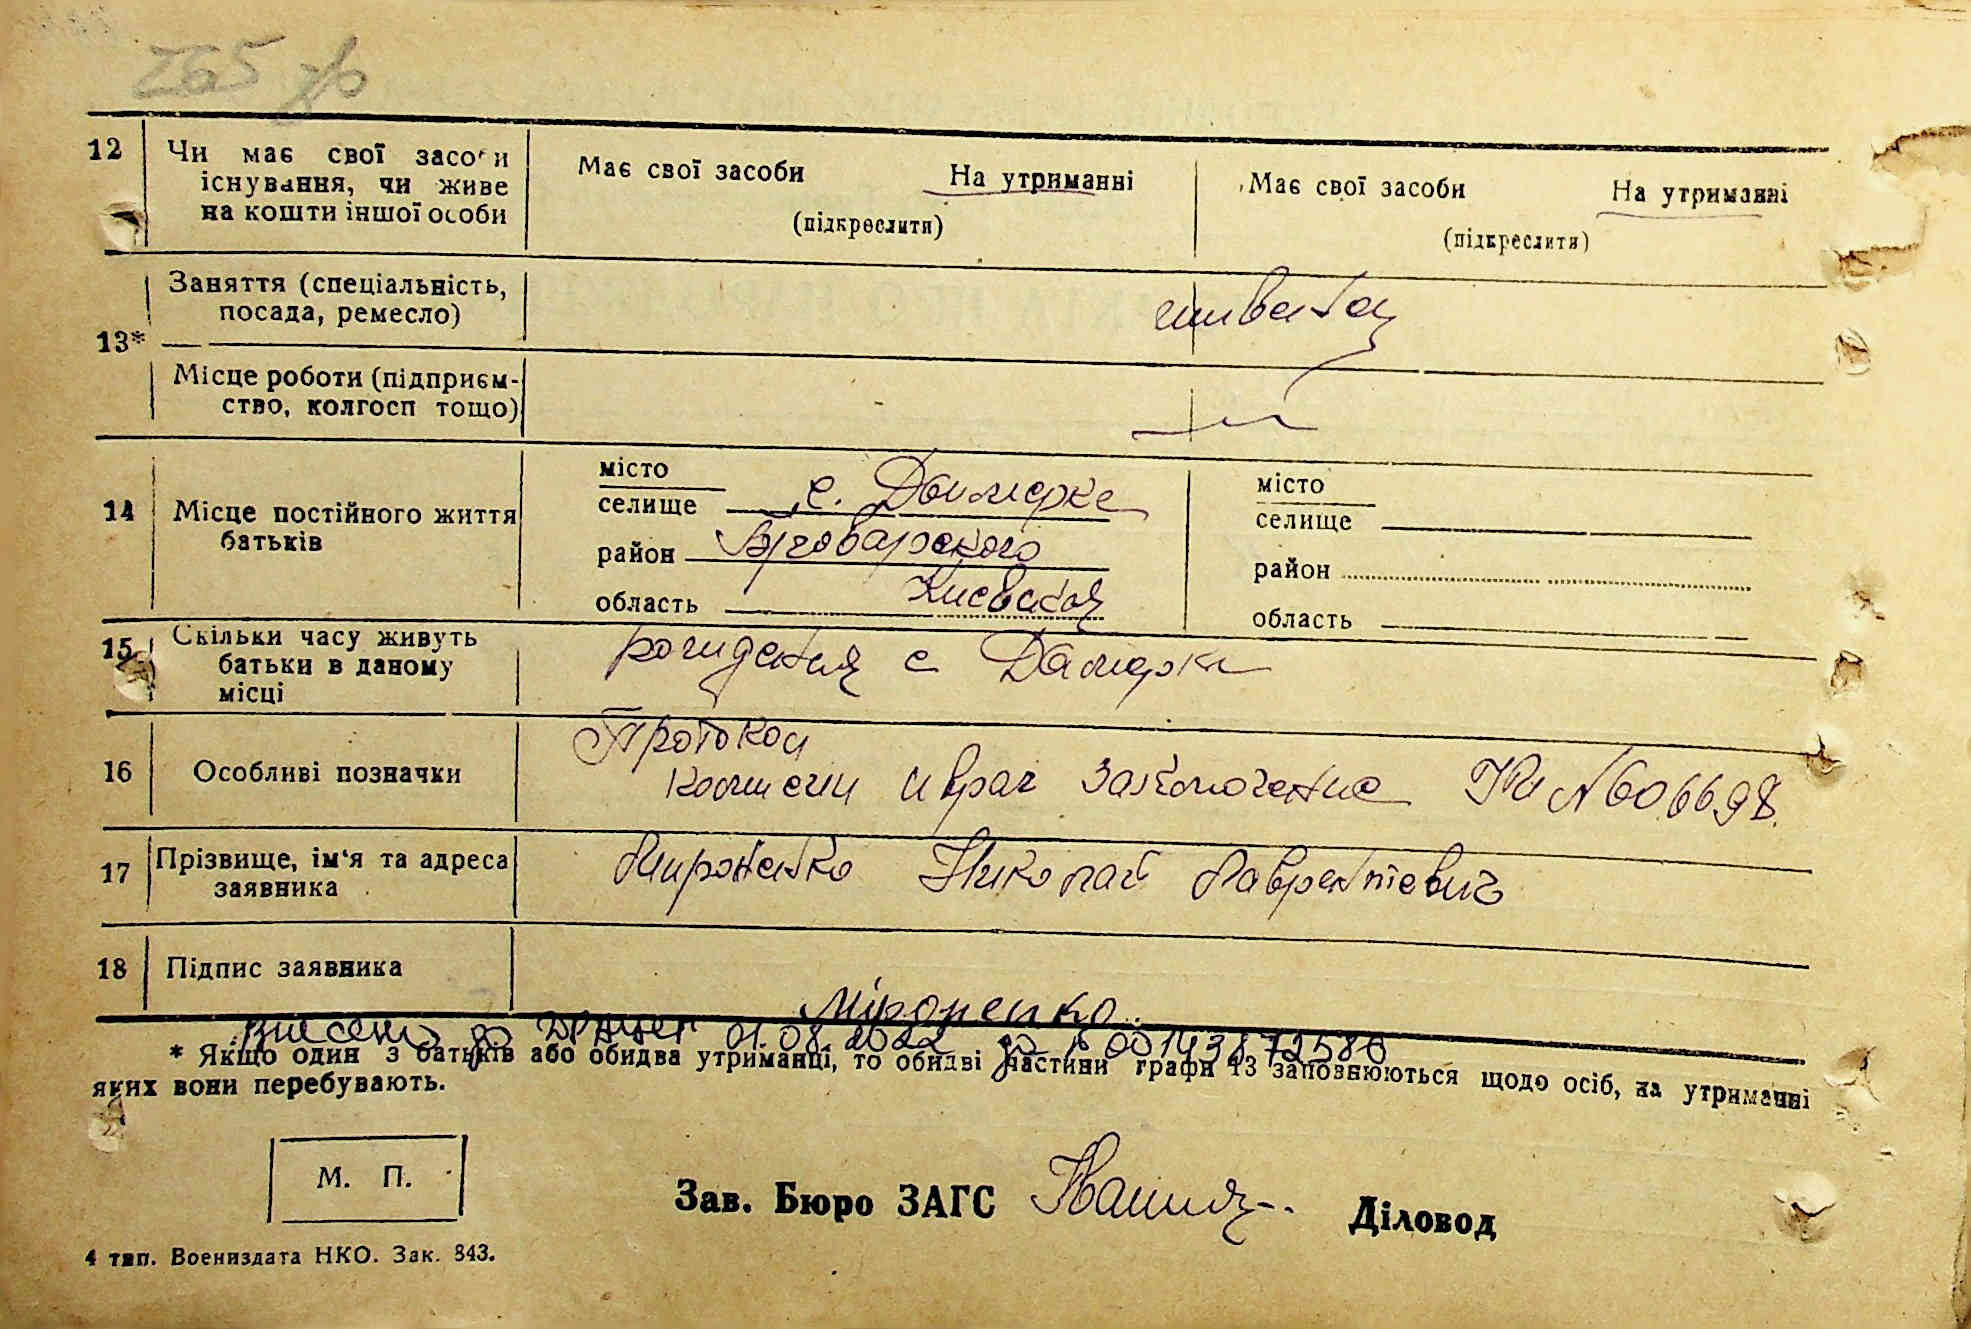 265 зв
12
Чи має свої засоби існування, чи живе на кошти іншої особи
Має свої засоби На утриманні
(підкреслити)
Має свої засоби На утриманні
(підкреслити)
13*
Заняття (спеціальність,
посада, ремесло)
Місце роботи (підприєм-
ство, колгосп тощо)
14
Місце постійного життя
батьків
місто
селище с. Дымерке
район Броварского
область Киевской
місто
селище
район
область
15
Скільки часу живуть
батьки в даному
місці
рождения с Дымерки
16
Особливі позначки
Протокол
комисии и врач заключение № 606698
17
Прізвище, ім'я та адреса
заявника
Мироненко Николай Лаврентьевич
18
Підпис заявника
Міроненко
Внесено до ДРАЦСГ 01.08.2022 за № 00143872580
* Якщо один з батьків або обидва утриманці, то обидві частини графи 13 заповнюються щодо осіб, на утриманні
яких вони перебувають.
М. П.
Зав. Бюро ЗАГС Діловод
4 тип. Воениздата НКО. Зак. 843.